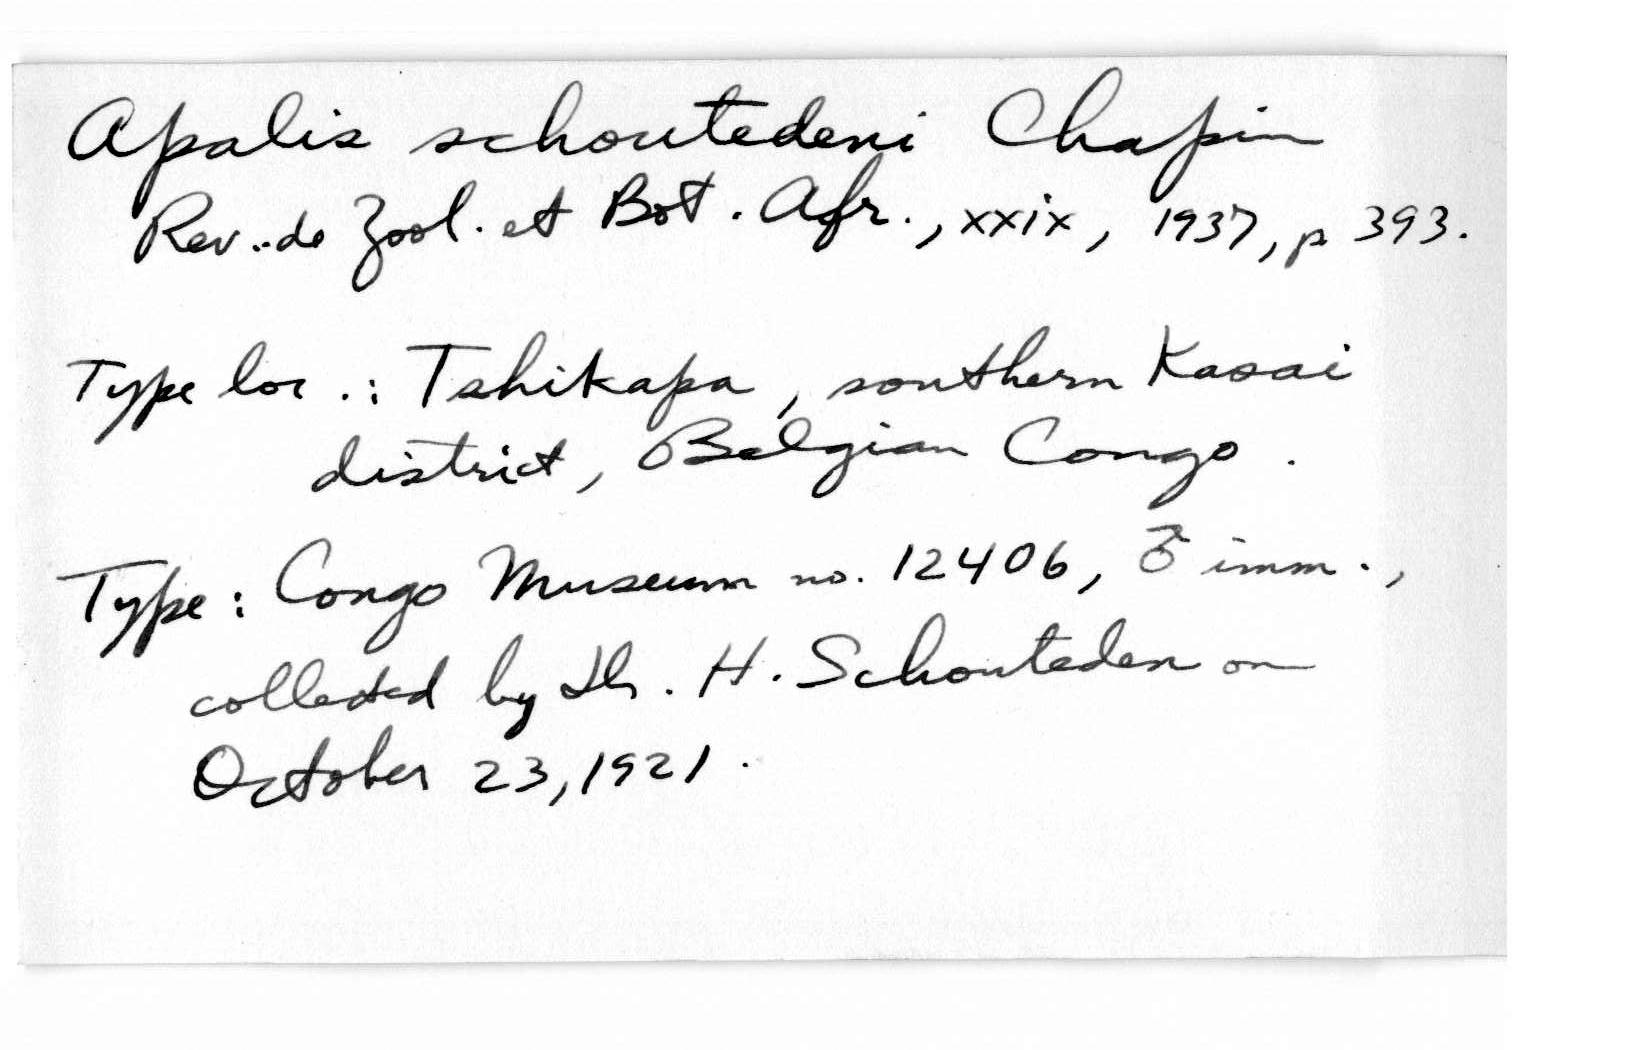 Apalis schoutedeni Chapin
Rev. de Zool. et Bot. Afr., xxix, 1937, p 393.
Type loc.: Tshikapa, southern Kasai
district, Belgian Congo.
Type: Congo Museum no. 12406, ♂ imm.,
collected by Dr. H. Schouteden on
October 23, 1921.